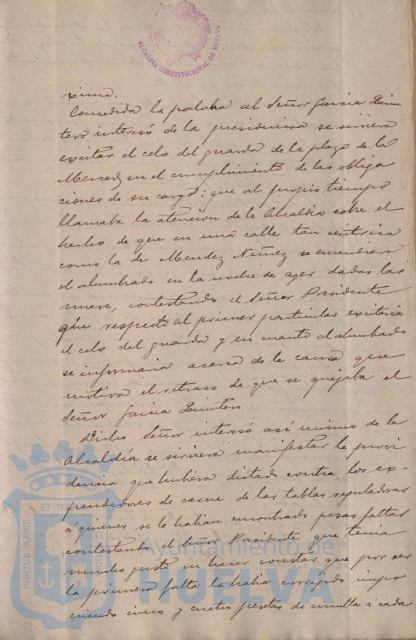 ALCALDIA CONSTITUCIONAL DE HUELVA
xima.
Concedida la palabra al Señor Garcia Quin
tero interesó de la presidencia se sirviera
excitar el celo del guarda de la plaza de la
Merced en el cumplimiento de las obliga
ciones de su cargo: que al propio tiempo
llamaba la atencion de la Alcaldia sobre el
hecho de que en una calle tan centrica
como la de Mendez Nuñez se encendiera
el alumbrado en la noche de ayer dadas las
nueve, contestando el Señor Presidente
que respecto al primer particular excitaria
el celo del guarda y en cuanto al alumbrado
se informaria acerca de la causa que
motiva el retraso de que se quejaba el
Señor Garcia Quintero.
Dicho Señor interesó asi mismo de la
Alcaldía se sirviera manifestar la provi
dencia que hubiera dictado contra los ex-
pendedores de carne de las tablas reguladoras
a quienes se le habian encontrado pesas faltas
contestando el Señor Presidente que tenia
mucho gusto en hacer constar que por ser
la primera falta la habia corregido impo
niendo cinco y cuatro pesetas de multa a cada
Ayuntamiento de
HUELVA